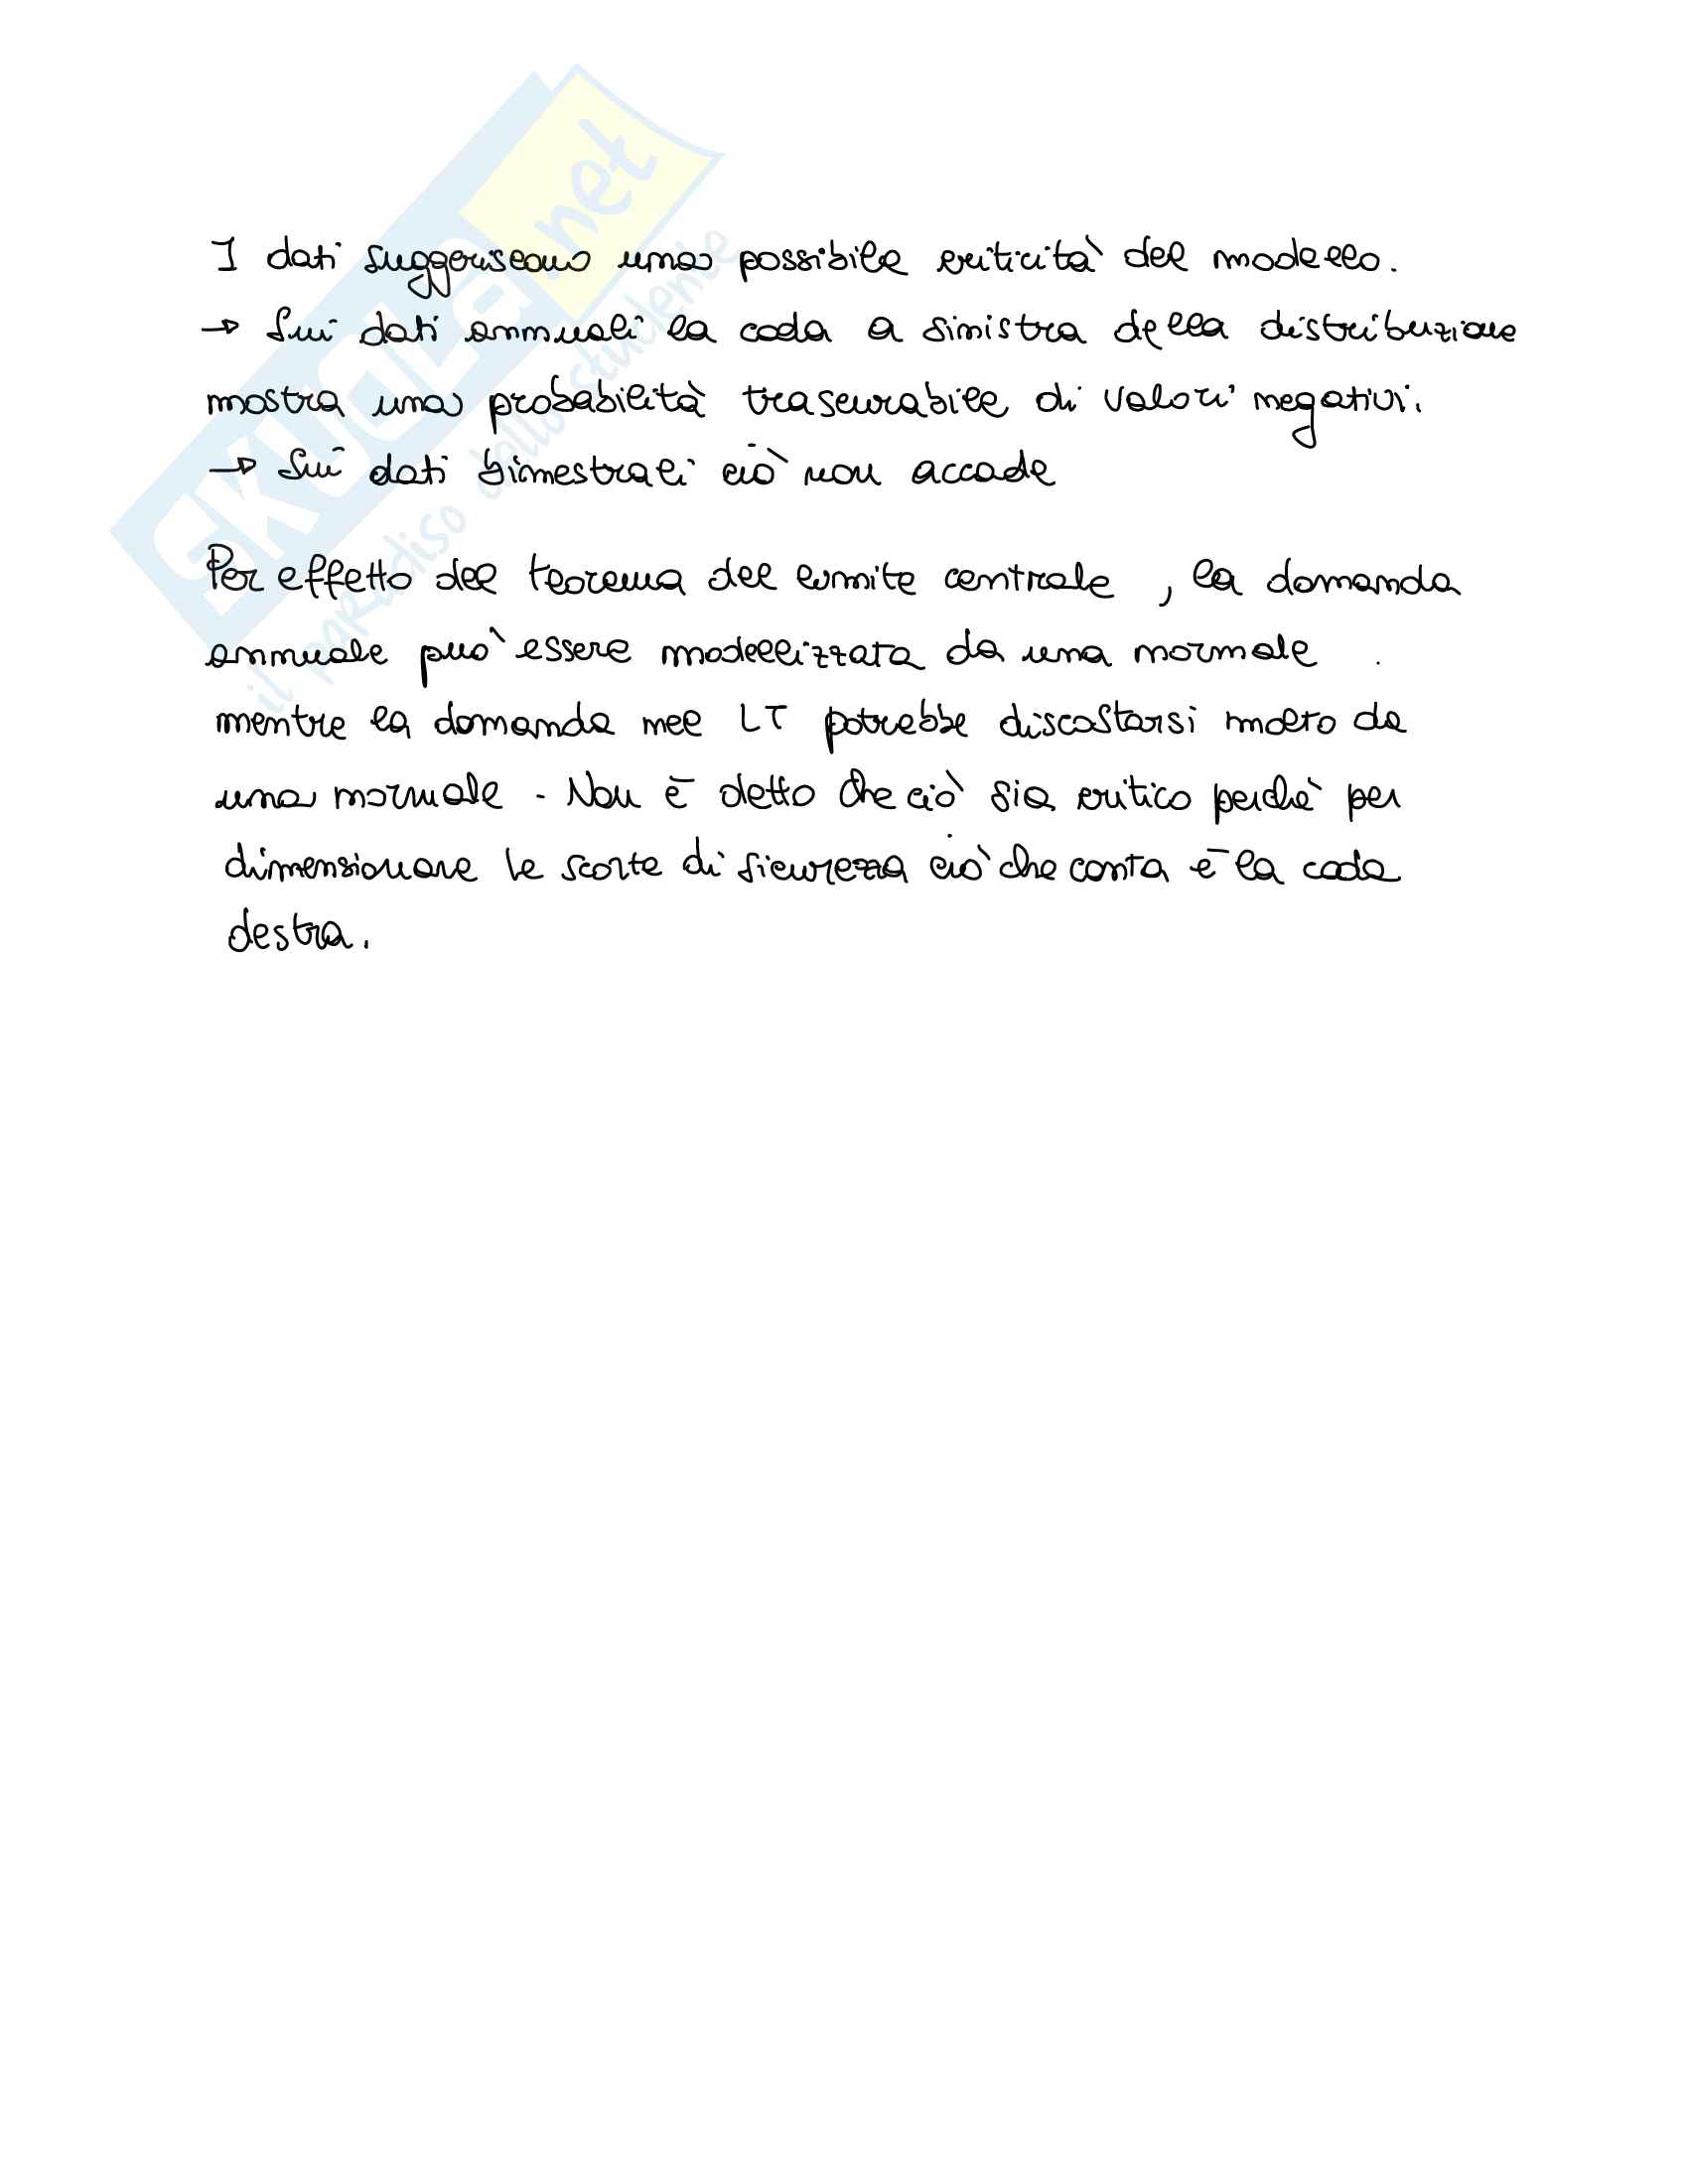 I dati suggeriscono una possibile criticità del modello.
→ Sui dati annuali la coda a sinistra della distribuzione
mostra una probabilità trascurabile di valori negativi.
→ Sui dati bimestrali ciò non accade
Per effetto del teorema del limite centrale, la domanda
annuale può essere modellizzata da una normale.
mentre la domanda nel LT potrebbe discostarsi molto da
una normale. Non è detto che ciò sia critico perchè per
dimensionare le scorte di sicurezza ciò che conta è la coda
destra.
SKUOLA.net
il paradiso dello studente